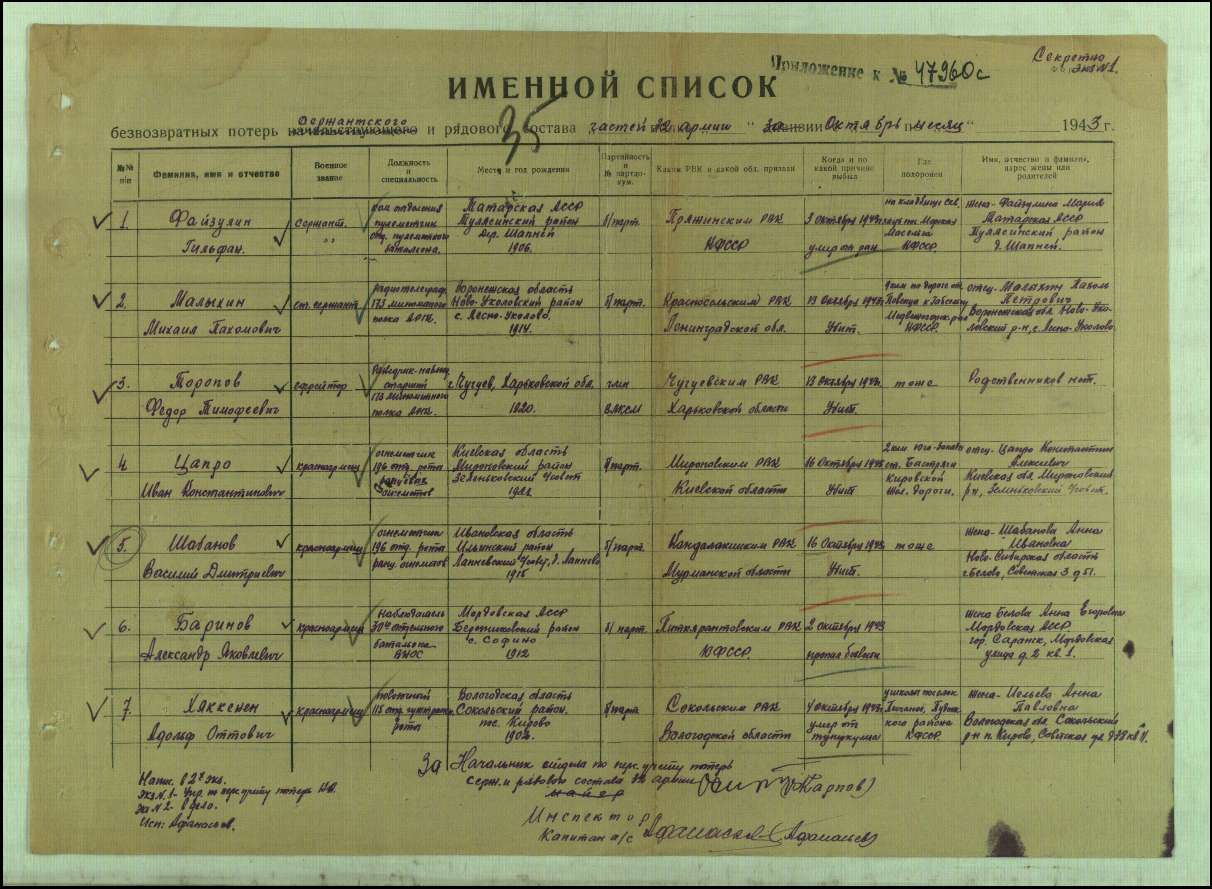 Секретно
экз №1.
Приложение к № 47960с
ИМЕННОЙ СПИСОК
35
Сержантского
безвозвратных потерь начальствующего и рядового состава частей 32 армии " за Октябрь месяц " 1943 г.
№№ п/п
Фамилия, имя и отчество
Военное звание
Должность и специальность
Место и год рождения
Партийность и № партдокум.
Каким РВК и какой обл. призван
Когда и по какой причине выбыл
Где похоронен
Имя, отчество и фамилия, адрес жены или родителей
1. Файзулин Гильфан.
Сержант.
ком отделения пулеметчик отд. пулеметного батальона.
Татарская АССР
Тулясинский район
Дер. Шапней
1906.
б/парт
Пряжинским РВК
КФССР
3 Октября 1943
умер от ран
КФССР
жена-Файзулина Мария
Татарская АССР
Тулясинский район
д. Шапней.
2. Малыхин
Михаил Пахомович
ст. сержант
радиотелеграф. 173 минометного полка
Воронежская область
Ново-Уколовский район
с. Лесно-Уколово.
1914.
б/парт.
Красносельским РВК
Ленинградской обл.
13 Октября 1943
Убит.
КФССР.
отец-
Петрович
Воронежская обл. Ново-Уколовский р-н, с. Лесно-Уколово.
3. Торопов
Федор Тимофеевич
ефрейтор
старший 173 минометного полка
г. Чугуев, Харьковской обл.
1920.
член
ВЛКСМ
Чугуевским РВК
Харьковской области
13 Октября 1943
Убит.
тоже
Родственников нет.
4. Цапро
Иван Константинович
красноармеец
огнеметчик 196 отд. рота
Киевская область
Мироновский район
б/парт.
Мироновским РВК
Киевской области
16 Октября 1943
Убит
2 км Юго-Запад.
Кировской
жел. дороги.
отец- Цапро Константин
Алексеевич
Киевская обл. Мироновский
р-н,
5. Шабанов
Василий Дмитриевич
красноармеец
огнеметчик 196 отд. рота ранц. огнеметов
Ивановская область
Ильинский район
1915
б/парт.
Кандалакшским РВК
Мурманской области
16 Октября 1943
Убит.
тоже
жена-Шабанова Анна
Ивановна
Ново-Сибирская область
г. Белово, Советская 3 д 51.
6. Баринов
Александр Яковлевич
красноармеец
наблюдатель 30го отдельного батальона ВНОС
Мордовская АССР
Березниковский район
с. Софино
1912
б/парт.
Питкярантовским РВК
КФССР.
2 Октября 1943
пропал б/вести
жена Белова Анна Егоровна
Мордовская АССР
гор. Саранск, Мордовская
улица д. 2 кв 1.
7. Хяккенен
Адольф Оттович
красноармеец
повозочный
Вологодская область
Сокольский район,
пос. Кирово
б/парт
Сокольским РВК
Вологодской области
4 Октября 1943
умер от туберкулеза
КФССР.
жена-
Павловна
Вологодская обл. Сокольский
р-н п. Кирово, Советская ул.
За Начальник отдела по перс. учету потерь
серж. и рядового состава 32 армии
майор
(Карпов)
Инспектор
Капитан а/с
(Афанасьев)
Напис. в 2х экз.
Экз №1- Упр. по перс. учету потерь
Экз №2- в дело.
Исп: Афанасьев.